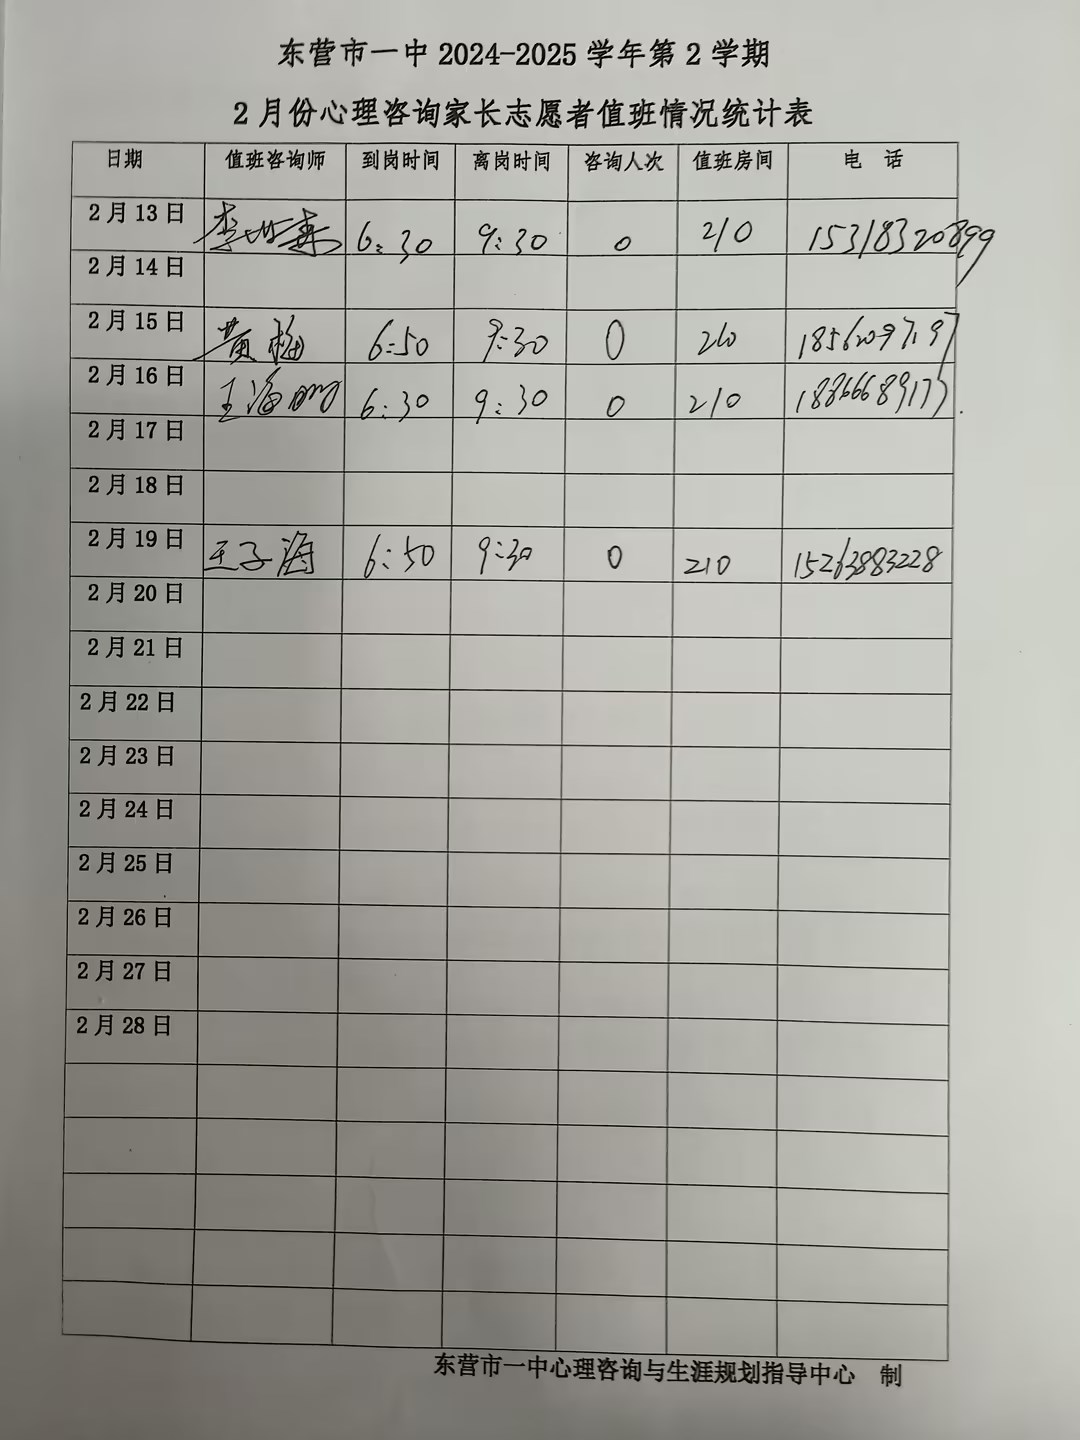 东营市一中 2024-2025 学年第 2 学期
2 月份心理咨询家长志愿者值班情况统计表
日期 值班咨询师 到岗时间 离岗时间 咨询人次 值班房间 电 话
2 月 13 日 李 6:30 9:30 0 210 15318320899
2 月 14 日
2 月 15 日 黄梅 6:50 9:30 0 210
2 月 16 日 王海 6:30 9:30 0 210
2 月 17 日
2 月 18 日
2 月 19 日 王子海 6:50 9:30 0 210 15263883228
2 月 20 日
2 月 21 日
2 月 22 日
2 月 23 日
2 月 24 日
2 月 25 日
2 月 26 日
2 月 27 日
2 月 28 日
东营市一中心理咨询与生涯规划指导中心 制